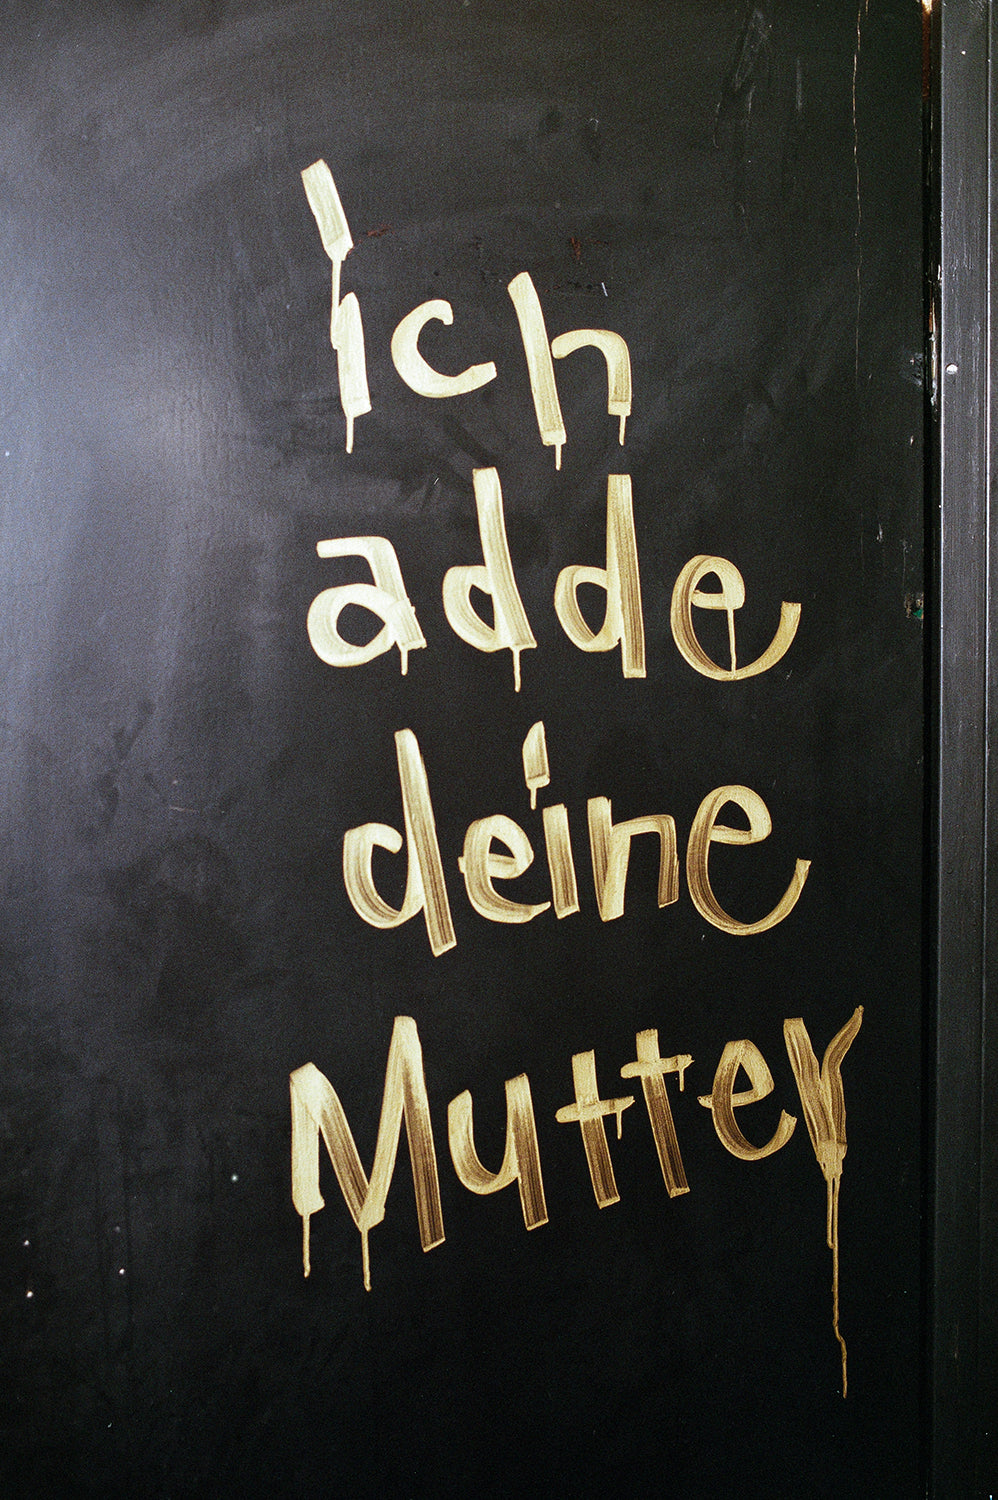 ich
adde
deine
Mutter